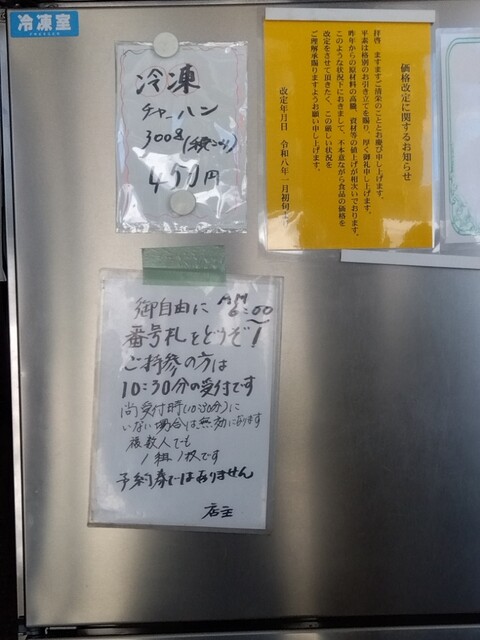 冷凍室
冷凍
チャーハン
300g(税こみ)
450円
価格改定に関するお知らせ
拝啓 ますますご清栄のこととお慶び申し上げます。
平素は格別のお引き立てを賜り、厚く御礼申し上げます。
昨年からの原材料の高騰、資材等の値上げが相次いでおります。
このような状況下におきまして、不本意ながら食品の価格を
改定をさせて頂きたく、この厳しい状況を
ご理解賜りますようお願い申し上げます。
改定年月日 令和八年一月初旬より
御自由に AM6:00〜
番号札をどうぞ!
ご持参の方は
10:30分の受付です
尚受付時(10:30分)に
いない場合は無効になります
複数人でも
1組1枚です
予約券ではありません
店主